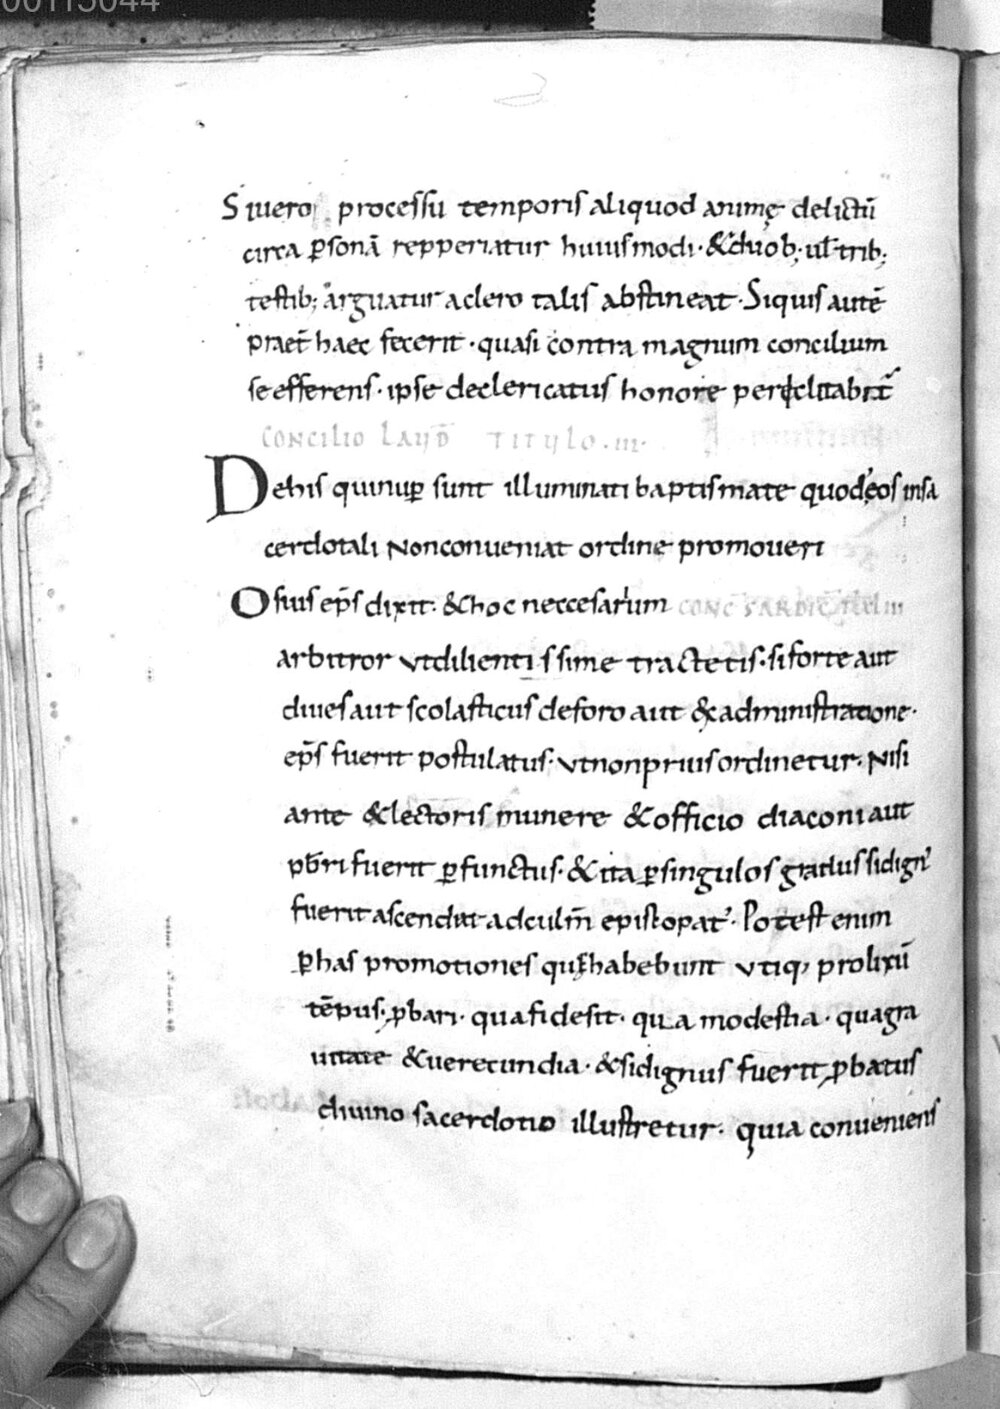 00113044
Siuero processu temporis aliquod animę delictū
circa ꝑsonā repperiatur huiusmodi · & duob; · uł trib;
testib; arguatur aclero talis abstineat · Siquis autē
praet̄ haec fecerit · quasi contra magnum concilium
se efferens · ipse declericatus honore
CONCILIO LAUD̄ TITULO · III ·
Dehis quinuꝑ sunt illuminati baptismate quod eos insa
cerdotali Nonconueniat ordine promoueri
Osius ep̄s dixit · & hoc neccesarium CONC SARDIC
arbitror vtdilientissime tractetis · siforte aut
diues aut scolasticus deforo aut & administratione ·
ep̄s fuerit postulatus · vtnonprius ordinetur · Nisi
ante & lectoris munere & officio diaconi aut
pb̄ri fuerit ꝑfunctus · & ita ꝑsingulos gradus sidign᾿
fuerit ascendat adculm̄ episcopat᾿ · Potest enim
ꝑhas promotiones quę habebunt vtiq; prolixū
tēpus · ꝓbari · qua fide sit · qua modestia · quagra
uitate & uerecundia · & sidignus fuerit ꝓbatus
diuino sacerdotio illustretur · quia conueniens